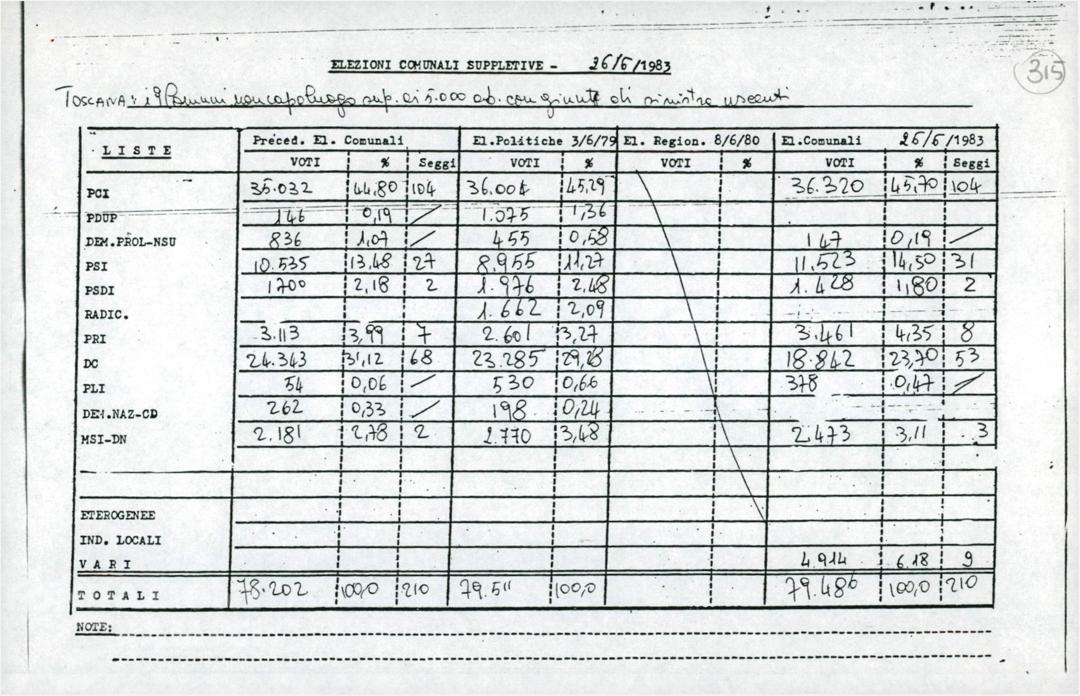 ELEZIONI COMUNALI SUPPLETIVE - 26/6/1983
315
TOSCANA: 9 Comuni non capoluogo sup. ai 5.000 ab. con giunte di sinistra uscenti
LISTE Preced. El. Comunali El.Politiche 3/6/79 El. Region. 8/6/80 El.Comunali 26/6/1983
VOTI % Seggi VOTI % VOTI % VOTI % Seggi
PCI 35.032 44,80 104 36.004 45,29 36.320 45,70 104
PDUP 146 0,19 / 1.075 1,36
DEM.PROL-NSU 836 1,07 / 455 0,58 147 0,19 /
PSI 10.535 13,48 27 8.955 11,27 11.523 14,50 31
PSDI 1700 2,18 2 1.976 2,48 1.428 1,80 2
RADIC. 1.662 2,09
PRI 3.113 3,99 7 2.601 3,27 3.461 4,35 8
DC 24.343 31,12 68 23.285 29,28 18.842 23,70 53
PLI 54 0,06 / 530 0,66 378 0,47 /
DEM.NAZ-CD 262 0,33 / 198 0,24
MSI-DN 2.181 2,78 2 2.770 3,48 2.473 3,11 3
ETEROGENEE
IND. LOCALI
VARI 4.914 6.18 9
TOTALI 78.202 100,0 210 79.511 100,0 79.486 100,0 210
NOTE: